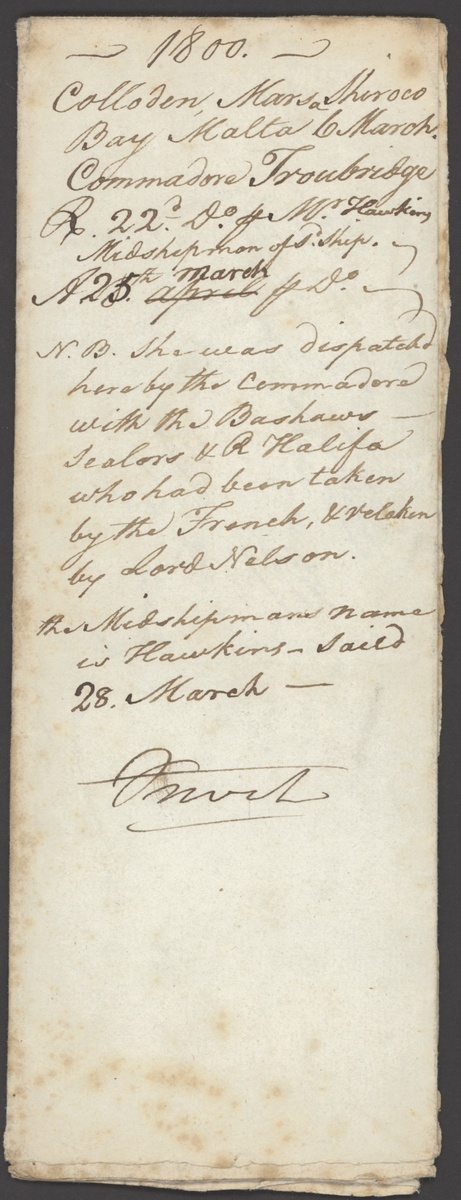 — 1800. —
Colloden, Marsa Shiroco
Bay Malta 6 March.
Commadore Troubridge
R. 22d. Do. p Mr. Hawkins
Midshipman of sd. ship.
A 25th march april p Do.
N.B. She was dispatchd
here by the Commadore
with the Bashaws —
Sealors & R Halifa
who had been taken
by the French, & retaken
by Lord Nelson.
the Midshipmans name
is Hawkins — Saild
28. March —